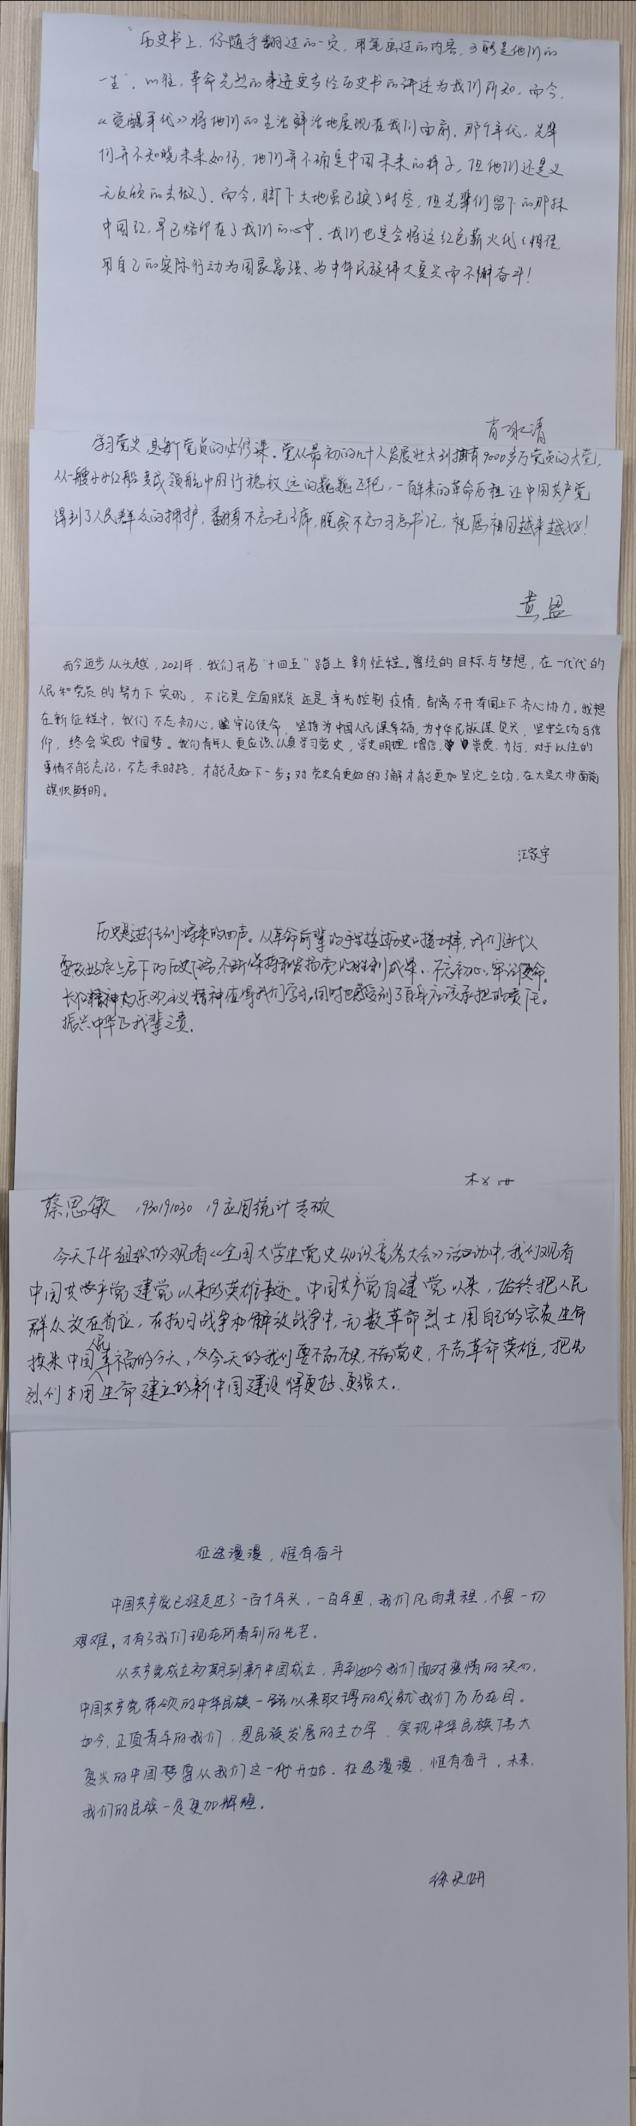 "历史书上，你随手翻过的一页，用笔画过的内容，可能是他们的
一生"。以往，革命先烈的事迹更多经历史书的讲述为我们所知，而今，
《觉醒年代》将他们的生活鲜活地展现在我们面前。那个年代，先辈
们并不知晓未来如何，他们并不确定中国未来的样子，但他们还是义
无反顾的去做了。而今，脚下大地虽已换了时空，但先辈们留下的那抹
中国红，早已烙印在了我们的心中，我们也定会将这红色薪火代代相传
用自己的实际行动为国家富强、为中华民族伟大复兴而不懈奋斗！
肖冰清
学习党史是每个党员的必修课。党从最初的几十人发展壮大到拥有9000多万党员的大党，
从一艘小小红船变成领航中国行稳致远的巍巍巨轮，一路走来的革命历程让中国共产党
得到了人民群众的拥护，翻身不忘毛主席，脱贫不忘习总书记，祝愿祖国越来越好！
黄
而今迈步从头越，2021年，我们开启"十四五"踏上新征程。曾经的目标与梦想，在一代代的
人民和党员的努力下实现，不论是全面脱贫还是率先控制疫情，都离不开举国上下齐心协力。我想
在新征程中，我们不忘初心，牢记使命，坚持为中国人民谋幸福，为中华民族谋复兴，坚守立场与信
仰，终会实现中国梦。我们青年人更应该认真学习党史，学史明理 增信 崇德 力行，对于以往的
事情不能忘记，不忘来时路，才能走好下一步；对党史有更好的了解才能更加坚定立场，在大是大非面前
旗帜鲜明。
汪家宇
历史是进传到将来的回声。从革命前辈的手里接过历史的接力棒，我们这代人
要效好承上启下的历史 不断保持和发扬党的胜利成果，不忘初心，牢记使命。
长征精神 乐观主义精神值得我们学习，同时也感受到了自身应该承担的责任。
振兴中华乃我辈之责。
蔡思敏 193019030 19应用统计专硕
今天下午组织的观看《全国大学生党史知识竞答大会》活动中，我们观看
中国共产党建党以来的英雄事迹。中国共产党自建党以来，始终把人民
群众放在首位，在抗日战争和解放战争中，无数革命烈士用自己的宝贵生命
换来中国人民幸福的今天，今天的我们要不忘历史，不忘党史，不忘革命英雄，把先
烈们用生命建立的新中国建设得更好、更强大。
征途漫漫，惟有奋斗
中国共产党已经走过了一百个年头，一百年里，我们风雨兼程，不畏一切
艰难，才有了我们现在所看到的光芒。
从共产党成立初期到新中国成立，再到如今我们面对疫情的决心，
中国共产党带领的中华民族一路以来取得的成就我们历历在目。
如今，正值青年的我们，是民族发展的主力军，实现中华民族伟大
复兴的中国梦要从我们这一代开始。征途漫漫，惟有奋斗，未来，
我们的民族一定更加辉煌。
徐 妍